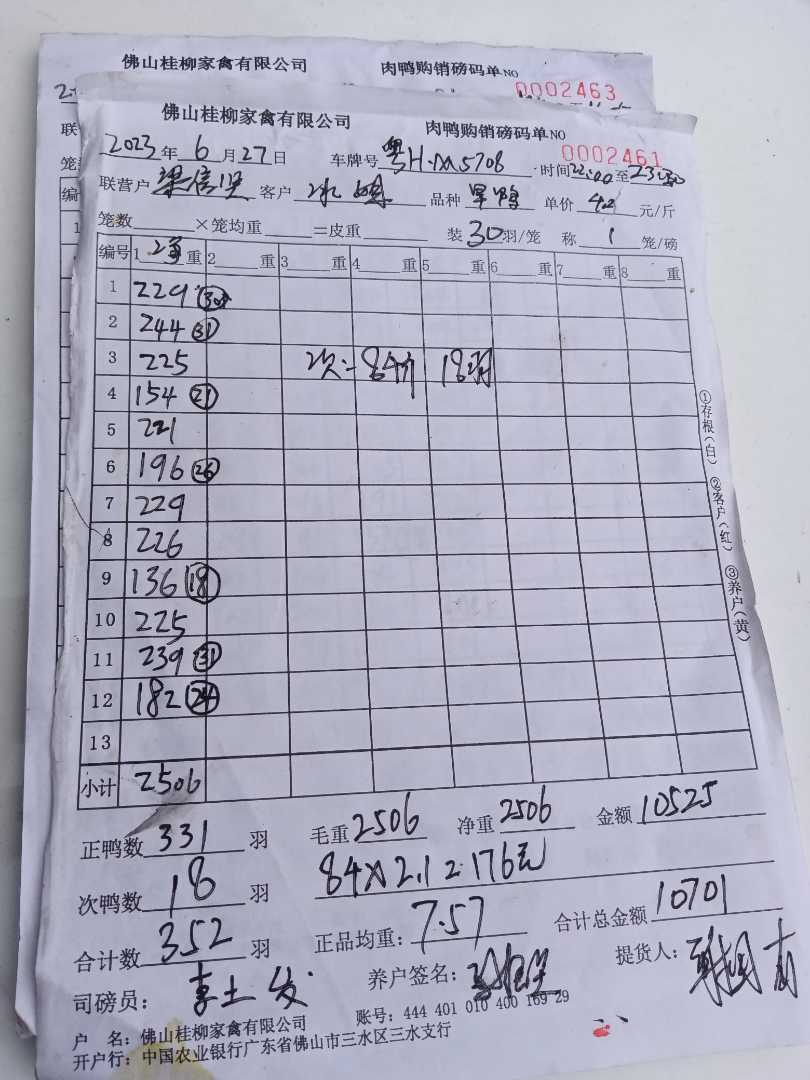 佛山桂柳家禽有限公司 肉鸭购销磅码单NO 0002463
佛山桂柳家禽有限公司 肉鸭购销磅码单NO 0002461
2023年6月27日 车牌号 粤H· 5708 时间22:00至23:30
联营户 客户 品种 单价 4.2 元/斤
笼数 ×笼均重 =皮重 装30羽/笼 称1笼/磅
编号 1 净重 2 重 3 重 4 重 5 重 6 重 7 重 8 重
1 229 30
2 244 31
3 225 次:84斤 18羽
4 154 21
5 221
6 196 26
7 229
8 226
9 136 18
10 225
11 239 31
12 182 24
13
小计 2506
①存根(白) ②客户(红) ③养户(黄)
正鸭数 331 羽 毛重 2506 净重 2506 金额 10525
次鸭数 18 羽 84×2.1=176元
合计数 352 羽 正品均重: 7.57 合计总金额 10701
司磅员: 养户签名: 提货人:
户 名: 佛山桂柳家禽有限公司 账号: 444 401 010 400 169 29
开户行: 中国农业银行广东省佛山市三水区三水支行